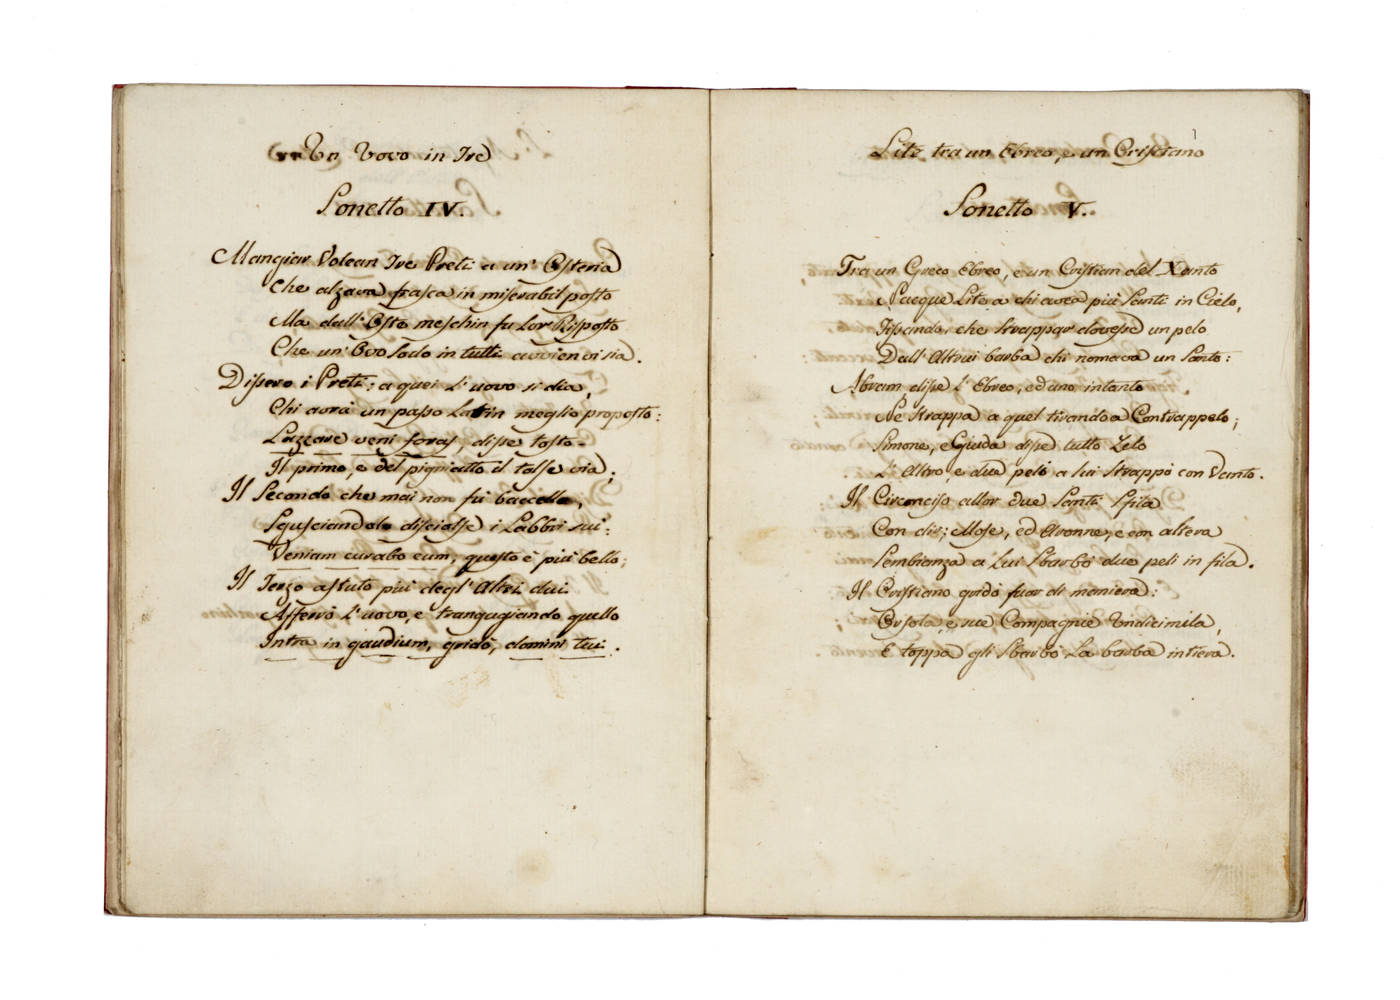 Un Uovo in Tre
Sonetto IV.
Mangiar Volean Tre Preti a un' Osteria
Che alzava frasca in miserabil posto
Ma dall' Oste meschin fu Lor Risposto
Che un' Ovo Sodo in tutti avvien vi sia.
Dissero i Preti: a quei L' uovo si dia,
Chi avrà un passo Latin meglio proposto:
Lazzare veni foras, disse tosto
Il primo, e del pigniatto il tolse via;
Il Secondo che mai non fu baccello,
Sgusciandolo discialse i Labbri sui:
Veniam curabo eum, questo è più bello;
Il Terzo astuto più degl' Altri dui
Afferrò L' uovo, e trangugiando quello
Intra in gaudium, gridò, domini tui.
Lite tra un Ebreo, e un Cristiano
Sonetto V.
Tra un Greco Ebreo, e un Cristian del Xanto
Nacque Lite a chi avea più Santi in Cielo,
Fissando, che strappar dovesse un pelo
Dall' Altrui barba chi nomava un Santo:
Abram disse l' Ebreo, ed uno intanto
Ne strappa a quel tirando a Contrappelo;
Simone, e Giuda disse tutto Zelo
L' Altro, e due peli a lui strappò con Vanto.
Il Circonciso allor due Santi sfila
Con dir; Mosè, ed Aronne, e con altera
Sembianza a Lui Sbarbò duo peli in fila.
Il Cristiano gridò fuor di maniera:
Orsola, e sue Compagnie Undicimila,
E toppa gli Sbarbò La barba intiera.